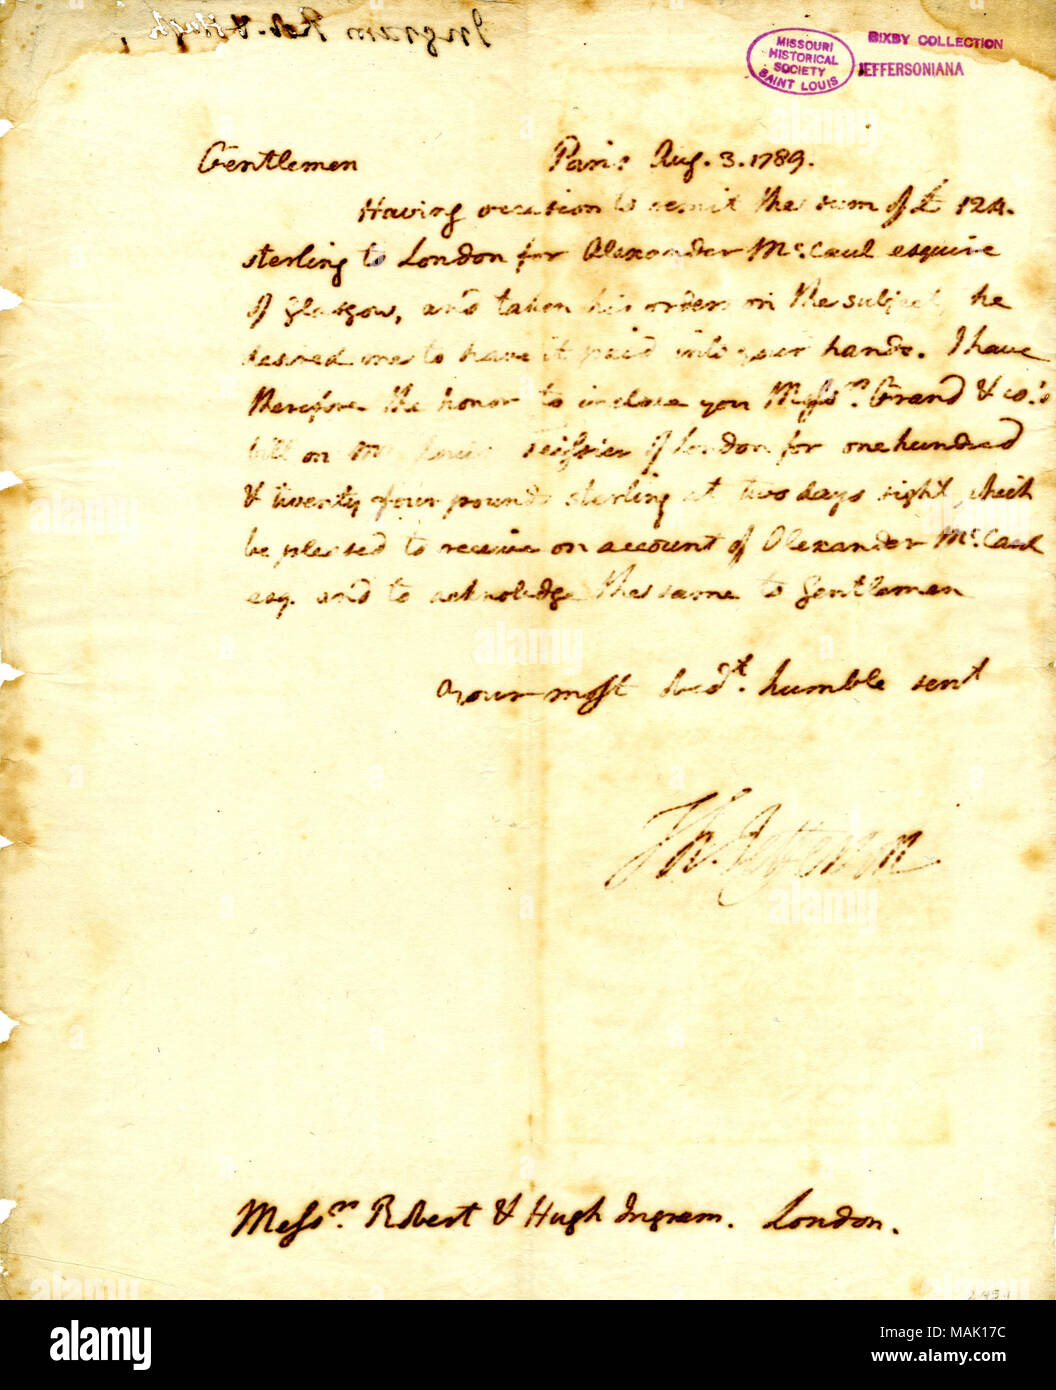 Ingram Rob. & Hugh
MISSOURI
HISTORICAL
SOCIETY
SAINT LOUIS
BIXBY COLLECTION
JEFFERSONIANA
Gentlemen Paris Aug. 3. 1789.
Having occasion to remit the sum of £ 124.
sterling to London for Alexander Mc.Caul esquire
of Glasgow, and taken his orders on the subject, he
desired me to have it paid into your hands. I have
therefore the honor to inclose you Messrs. Grand & co's
bill on Mr. Louis Teissier of London for one hundred
& twenty four pounds sterling at two days sight, which
be pleased to receive on account of Alexander Mc.Caul
esq. and to acknolege the same to Gentlemen
Your most obedt. humble servt
Th. Jefferson
Messrs. Robert & Hugh Ingram. London.
alamy
Image ID: MAK17C
www.alamy.com